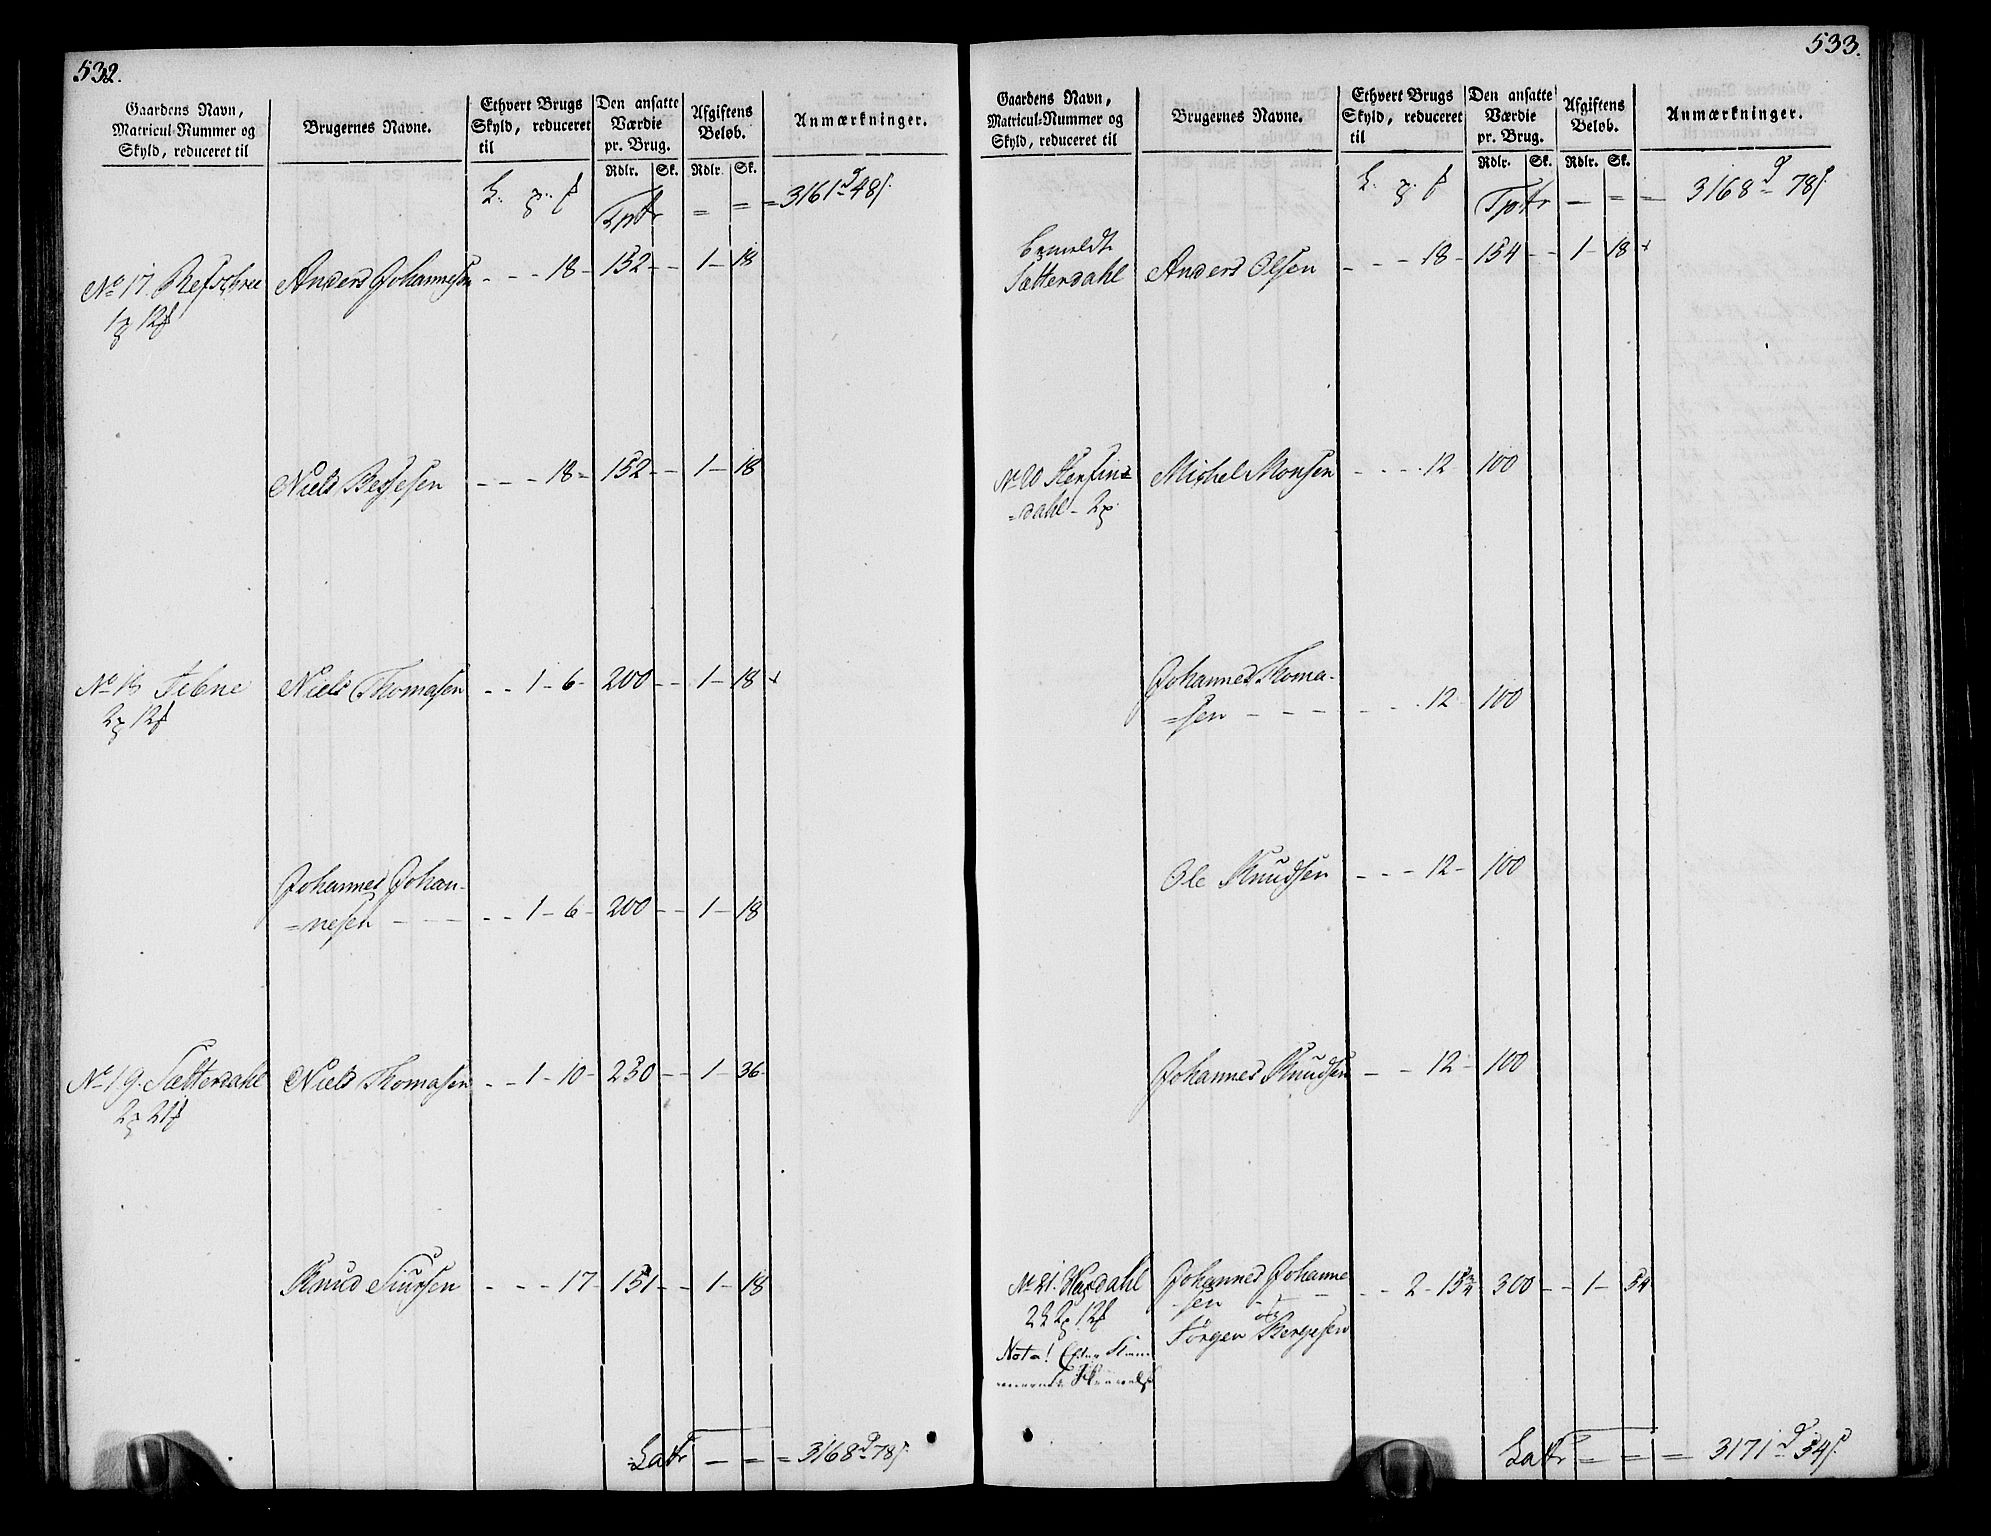 532.
Gaardens Navn,
Matricul-Nummer og
Skyld, reduceret til
Brugernes Navne.
Ethvert Brugs
Skyld, reduceret
til
Den ansatte
Værdie
pr. Brug.
Rdlr. Sk.
Afgiftens
Beløb.
Rdlr. Sk.
Anmærkninger.
Tptr = = = 3161 48
No 17 Refschree Anders Johannesen - - - 18 - 152 - - 1 - 18
1 12
Niels Bergesen - - - 18 - 152 - - 1 - 18
No 18 Niels Thomasen - - 1 - 6 - 200 - - 1 - 18
2 12
Johannes Johan-
=nesen - - - - - 1 - 6 - 200 - - 1 - 18
No 19. Sætterdahl Niels Thomasen - - 1 - 10 - 230 - - 1 - 36
2 21
Knud Siursen - - - 17 - 151 - - 1 - 18
Latr - = = 3168 78
533.
Gaardens Navn,
Matricul-Nummer og
Skyld, reduceret til
Brugernes Navne.
Ethvert Brugs
Skyld, reduceret
til
Den ansatte
Værdie
pr. Brug.
Rdlr. Sk.
Afgiftens
Beløb.
Rdlr. Sk.
Anmærkninger.
Tptr - = = 3168 78
Bemeldte
Sætterdahl Anders Olsen - - - 18 - 154 - - 1 - 18
No 20 Herfin=
=dahl - 2 Michel Monsen - - - 12 100
Johannes Thoma-
=sen - - - - - - 12 100
Ole Knudsen - - - 12 - 100
Johannes Knudsen - - - 12 - 100
No 21. Johannes Johanne
=sen - - - - 2 - 300 - - 1 - 54
og
Jörgen Bergesen
Nota! Efter
Latr = = = 3171 54